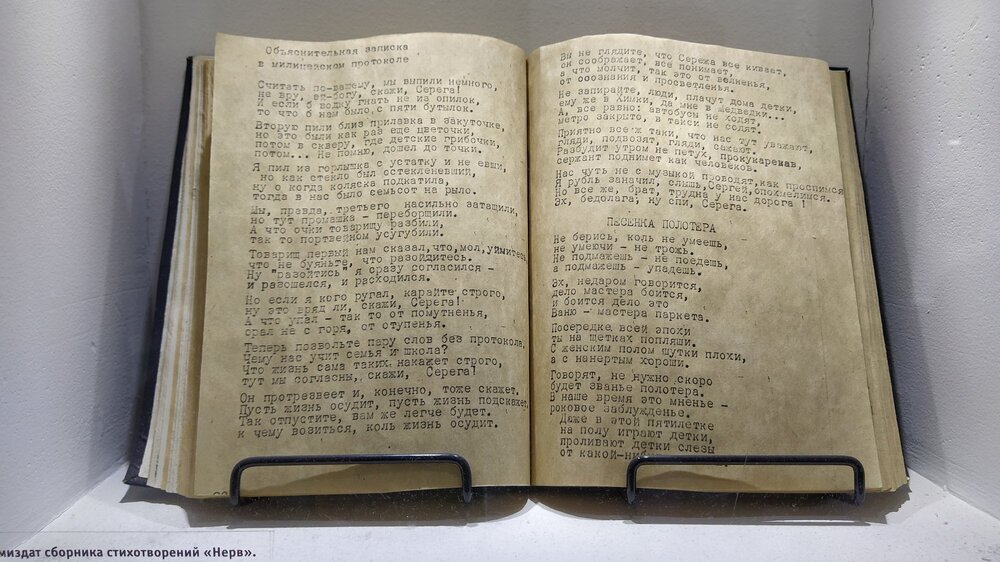 Объяснительная записка
в милицейском протоколе
Считать по-вашему, мы выпили немного,
не вру, ей-богу, скажи, Серега!
И если б водку гнать не из опилок,
то что б нам было с пяти бутылок.
Вторую пили близ прилавка в закуточке,
но это были как раз еще цветочки,
потом в скверу, где детские грибочки,
потом... Не помню, дошел до точки.
Я пил из горлышка с устатку и не евши,
но как стекло был остекленевший,
ну а когда коляска подкатила,
тогда в нас было семьсот на рыло.
Мы, правда, третьего насильно затащили,
но тут промашка - переборщили.
А что очки товарищу разбили,
так то портвейном усугубили.
Товарищ первый нам сказал, что, мол, уймитесь,
что не буяньте, что разойдитесь.
Ну "разойтись" я сразу согласился -
и разошелся, и расходился.
Но если я кого ругал, карайте строго,
ну это вряд ли, скажи, Серега!
А что упал - так то от помутненья,
орал не с горя, от отупенья.
Теперь позвольте пару слов без протокола,
Чему нас учит семья и школа?
Что жизнь сама таких накажет строго,
тут мы согласны, скажи, Серега!
Он протрезвеет и, конечно, тоже скажет.
Пусть жизнь осудит, пусть жизнь подскажет,
Так отпустите, вам же легче будет.
к чему возиться, коль жизнь осудит.
Вы не глядите, что Сережа все кивает,
он соображает, все понимает,
а что молчит, так это от волненья,
от осознания и просветленья.
Не запирайте, люди, плачут дома детки,
ему же в Химки, да мне в медведки...
А, все равно: автобусы не ходят,
метро закрыто, в такси не содят.
Приятно все ж таки, что нас тут уважают,
гляди, подвозят, гляди, сажают.
Разбудит утром не петух, прокукарекав,
сержант поднимет как человеков.
Нас чуть не с музыкой проводят, как проспимся
Я рубль заначил, слышь, Сергей, опохмелимся.
Но все же, брат, трудна у нас дорога !
Эх, бедолага, ну спи, Серега.
ПЕСЕНКА ПОЛОТЕРА
Не берись, коль не умеешь,
не умеючи - не трожь.
Не подмажешь - не поедешь,
а подмажешь - упадешь.
Эх, недаром говорится,
дело мастера боится,
и боится дело это
Ваню - мастера паркета.
Посередке всей эпохи
ты на щетках попляши.
С женским полом шутки плохи,
а с нанертым хороши.
Говорят, не нужно скоро
будет званье полотера.
В наше время это мненье -
роковое заблужденье.
Даже в этой пятилетке
на полу играют детки,
проливают детки слезы
от какой-ниб
миздат сборника стихотворений «Нерв».